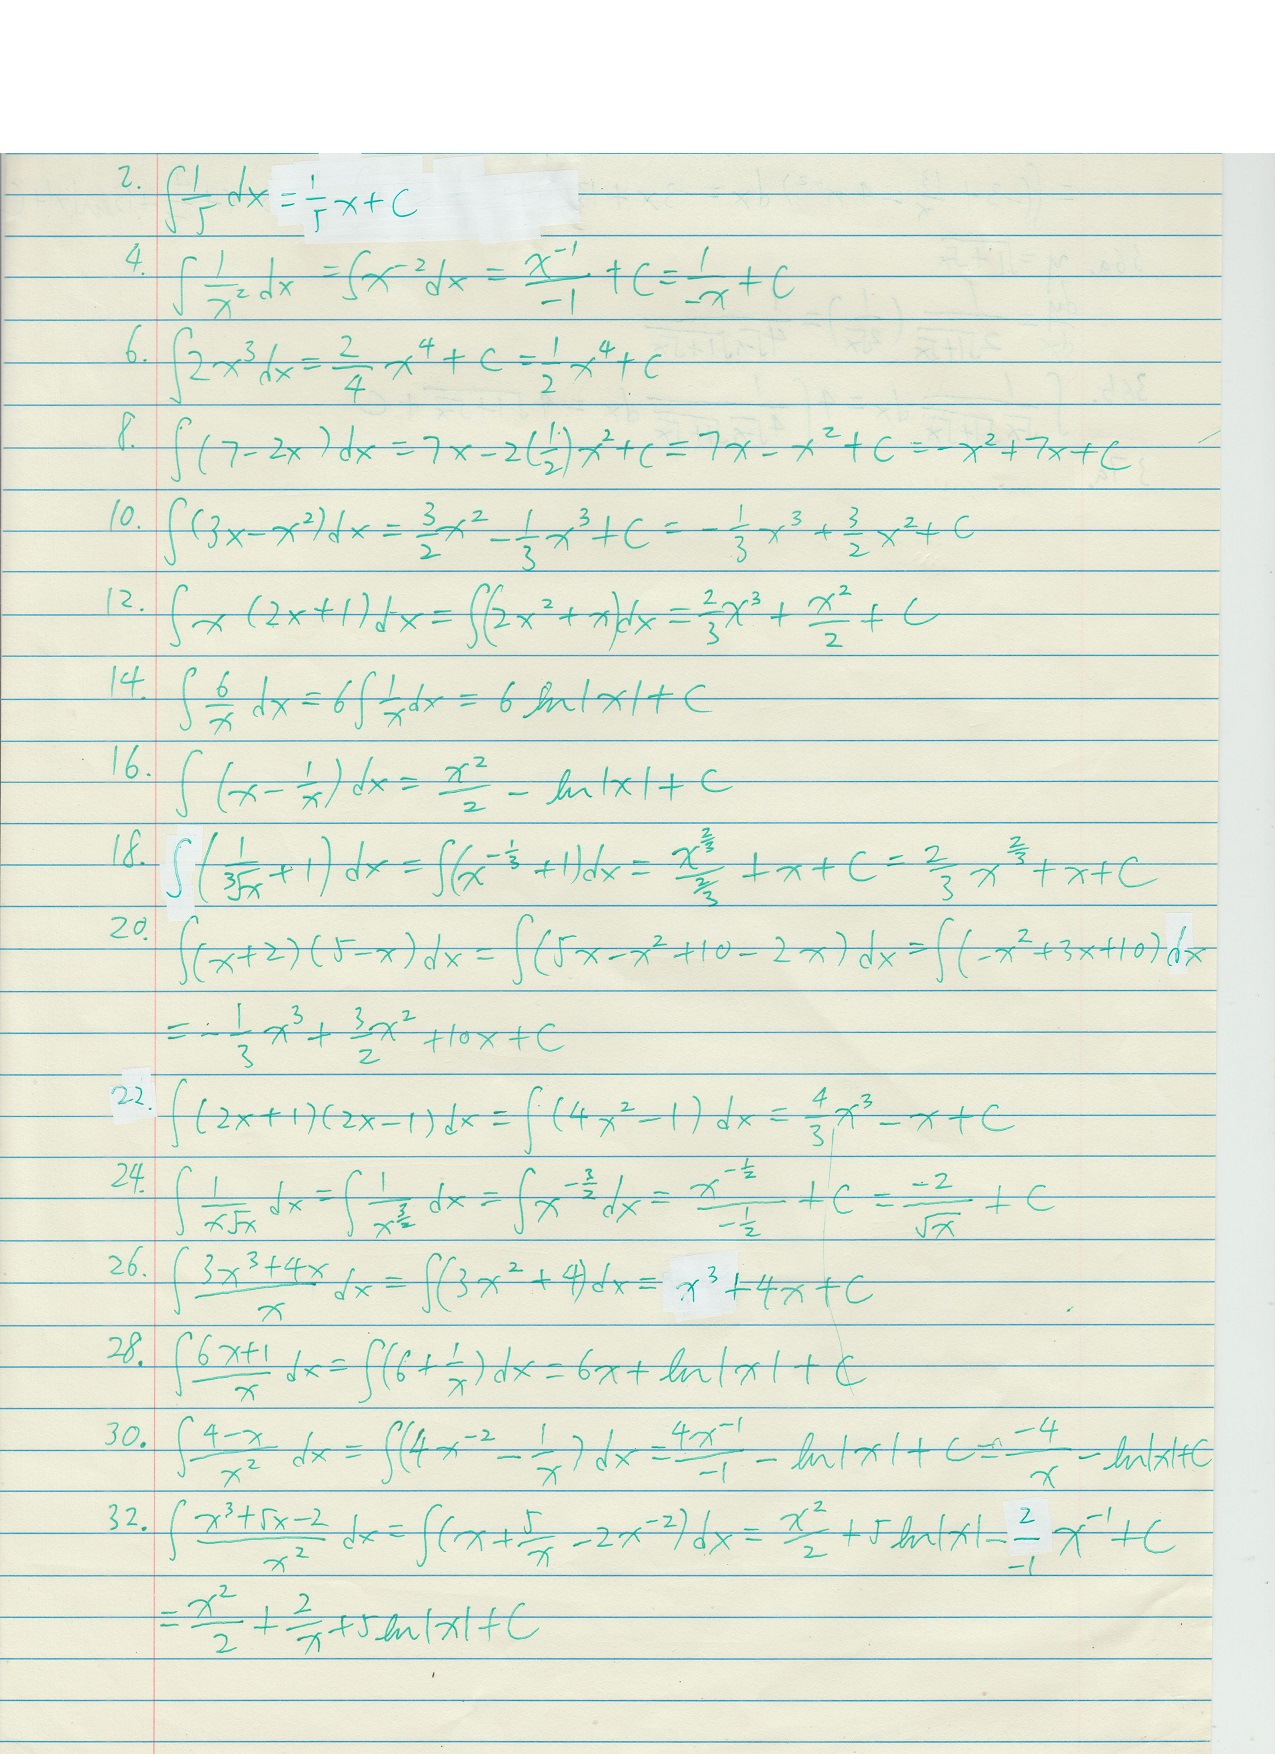 2. ∫ 1/5 dx = 1/5 x + C
4. ∫ 1/x² dx = ∫ x⁻² dx = x⁻¹/-1 + C = 1/-x + C
6. ∫ 2x³ dx = 2/4 x⁴ + C = 1/2 x⁴ + C
8. ∫ (7 - 2x) dx = 7x - 2(1/2)x² + C = 7x - x² + C = -x² + 7x + C
10. ∫ (3x - x²) dx = 3/2 x² - 1/3 x³ + C = -1/3 x³ + 3/2 x² + C
12. ∫ x (2x + 1) dx = ∫ (2x² + x) dx = 2/3 x³ + x²/2 + C
14. ∫ 6/x dx = 6 ∫ 1/x dx = 6 ln|x| + C
16. ∫ (x - 1/x) dx = x²/2 - ln|x| + C
18. ∫ (1/∛x + 1) dx = ∫ (x^(-1/3) + 1) dx = x^(2/3)/(2/3) + x + C = 2/3 x^(2/3) + x + C
20. ∫ (x + 2)(5 - x) dx = ∫ (5x - x² + 10 - 2x) dx = ∫ (-x² + 3x + 10) dx
= -1/3 x³ + 3/2 x² + 10x + C
22. ∫ (2x + 1)(2x - 1) dx = ∫ (4x² - 1) dx = 4/3 x³ - x + C
24. ∫ 1/(x√x) dx = ∫ 1/x^(3/2) dx = ∫ x^(-3/2) dx = x^(-1/2)/(-1/2) + C = -2/√x + C
26. ∫ (3x³ + 4x)/x dx = ∫ (3x² + 4) dx = x³ + 4x + C
28. ∫ (6x + 1)/x dx = ∫ (6 + 1/x) dx = 6x + ln|x| + C
30. ∫ (4 - x)/x² dx = ∫ (4x⁻² - 1/x) dx = 4x⁻¹/-1 - ln|x| + C = -4/x - ln|x| + C
32. ∫ (x³ + 5x - 2)/x² dx = ∫ (x + 5/x - 2x⁻²) dx = x²/2 + 5 ln|x| - 2/-1 x⁻¹ + C
= x²/2 + 2/x + 5 ln|x| + C